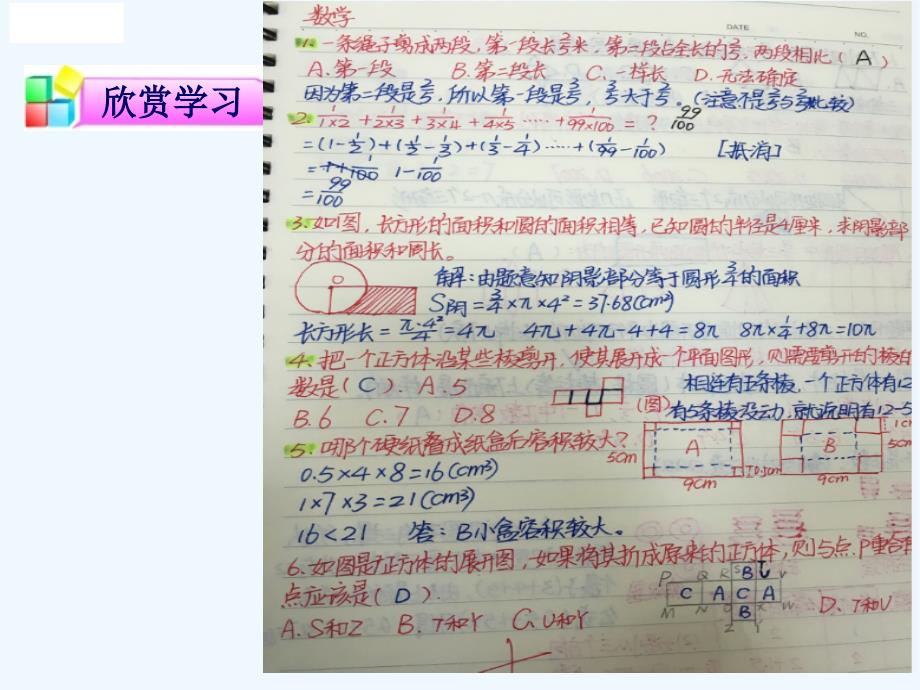 欣赏学习
数学
DATE
NO.
1. 一条绳子剪成两段，第一段长3/5米，第二段占全长的2/5，两段相比（A）
A.第一段 B.第二段长 C.一样长 D.无法确定
因为第二段是2/5，所以第一段是3/5，3/5大于2/5。（注意不是3/5与2/5比较）
2. 1/1×2 + 1/2×3 + 1/3×4 + 1/4×5 ······ + 1/99×100 = ? 99/100
=(1-1/2)+(1/2-1/3)+(1/3-1/4)······+(1/99-1/100) [抵消]
= 1-1/100
= 99/100
3.如图，长方形的面积和圆的面积相等，已知圆的半径是4厘米，求阴影部
分的面积和周长。
O
解：由题意知阴影部分等于圆形3/4的面积
S阴=3/4×π×4²=37.68(cm²)
长方形长=π·4²/4=4π 4π+4π-4+4=8π 8π×1/4+8π=10π
4.把一个正方体沿某些棱剪开，使其展开成一个平面图形，则需要剪开的棱的
数是（C）.A.5
相连有5条棱，一个正方体有12
B.6 C.7 D.8
(图) 有5条棱没动，就说明有12-5
5.哪个硬纸叠成纸盒后容积较大？
5cm A 0.5cm 9cm
B 1cm 5cm 9cm
0.5×4×8=16(cm³)
1×7×3=21(cm³)
16<21 答：B小盒容积较大。
6.如图是正方体的展开图，如果将其折成原来的正方体，则与点P重合的
点应该是（D）.
P Q R S B T V
C A C A
M N O X W
B
Z Y
A.S和Z B.T和Y C.U和Y D.T和U